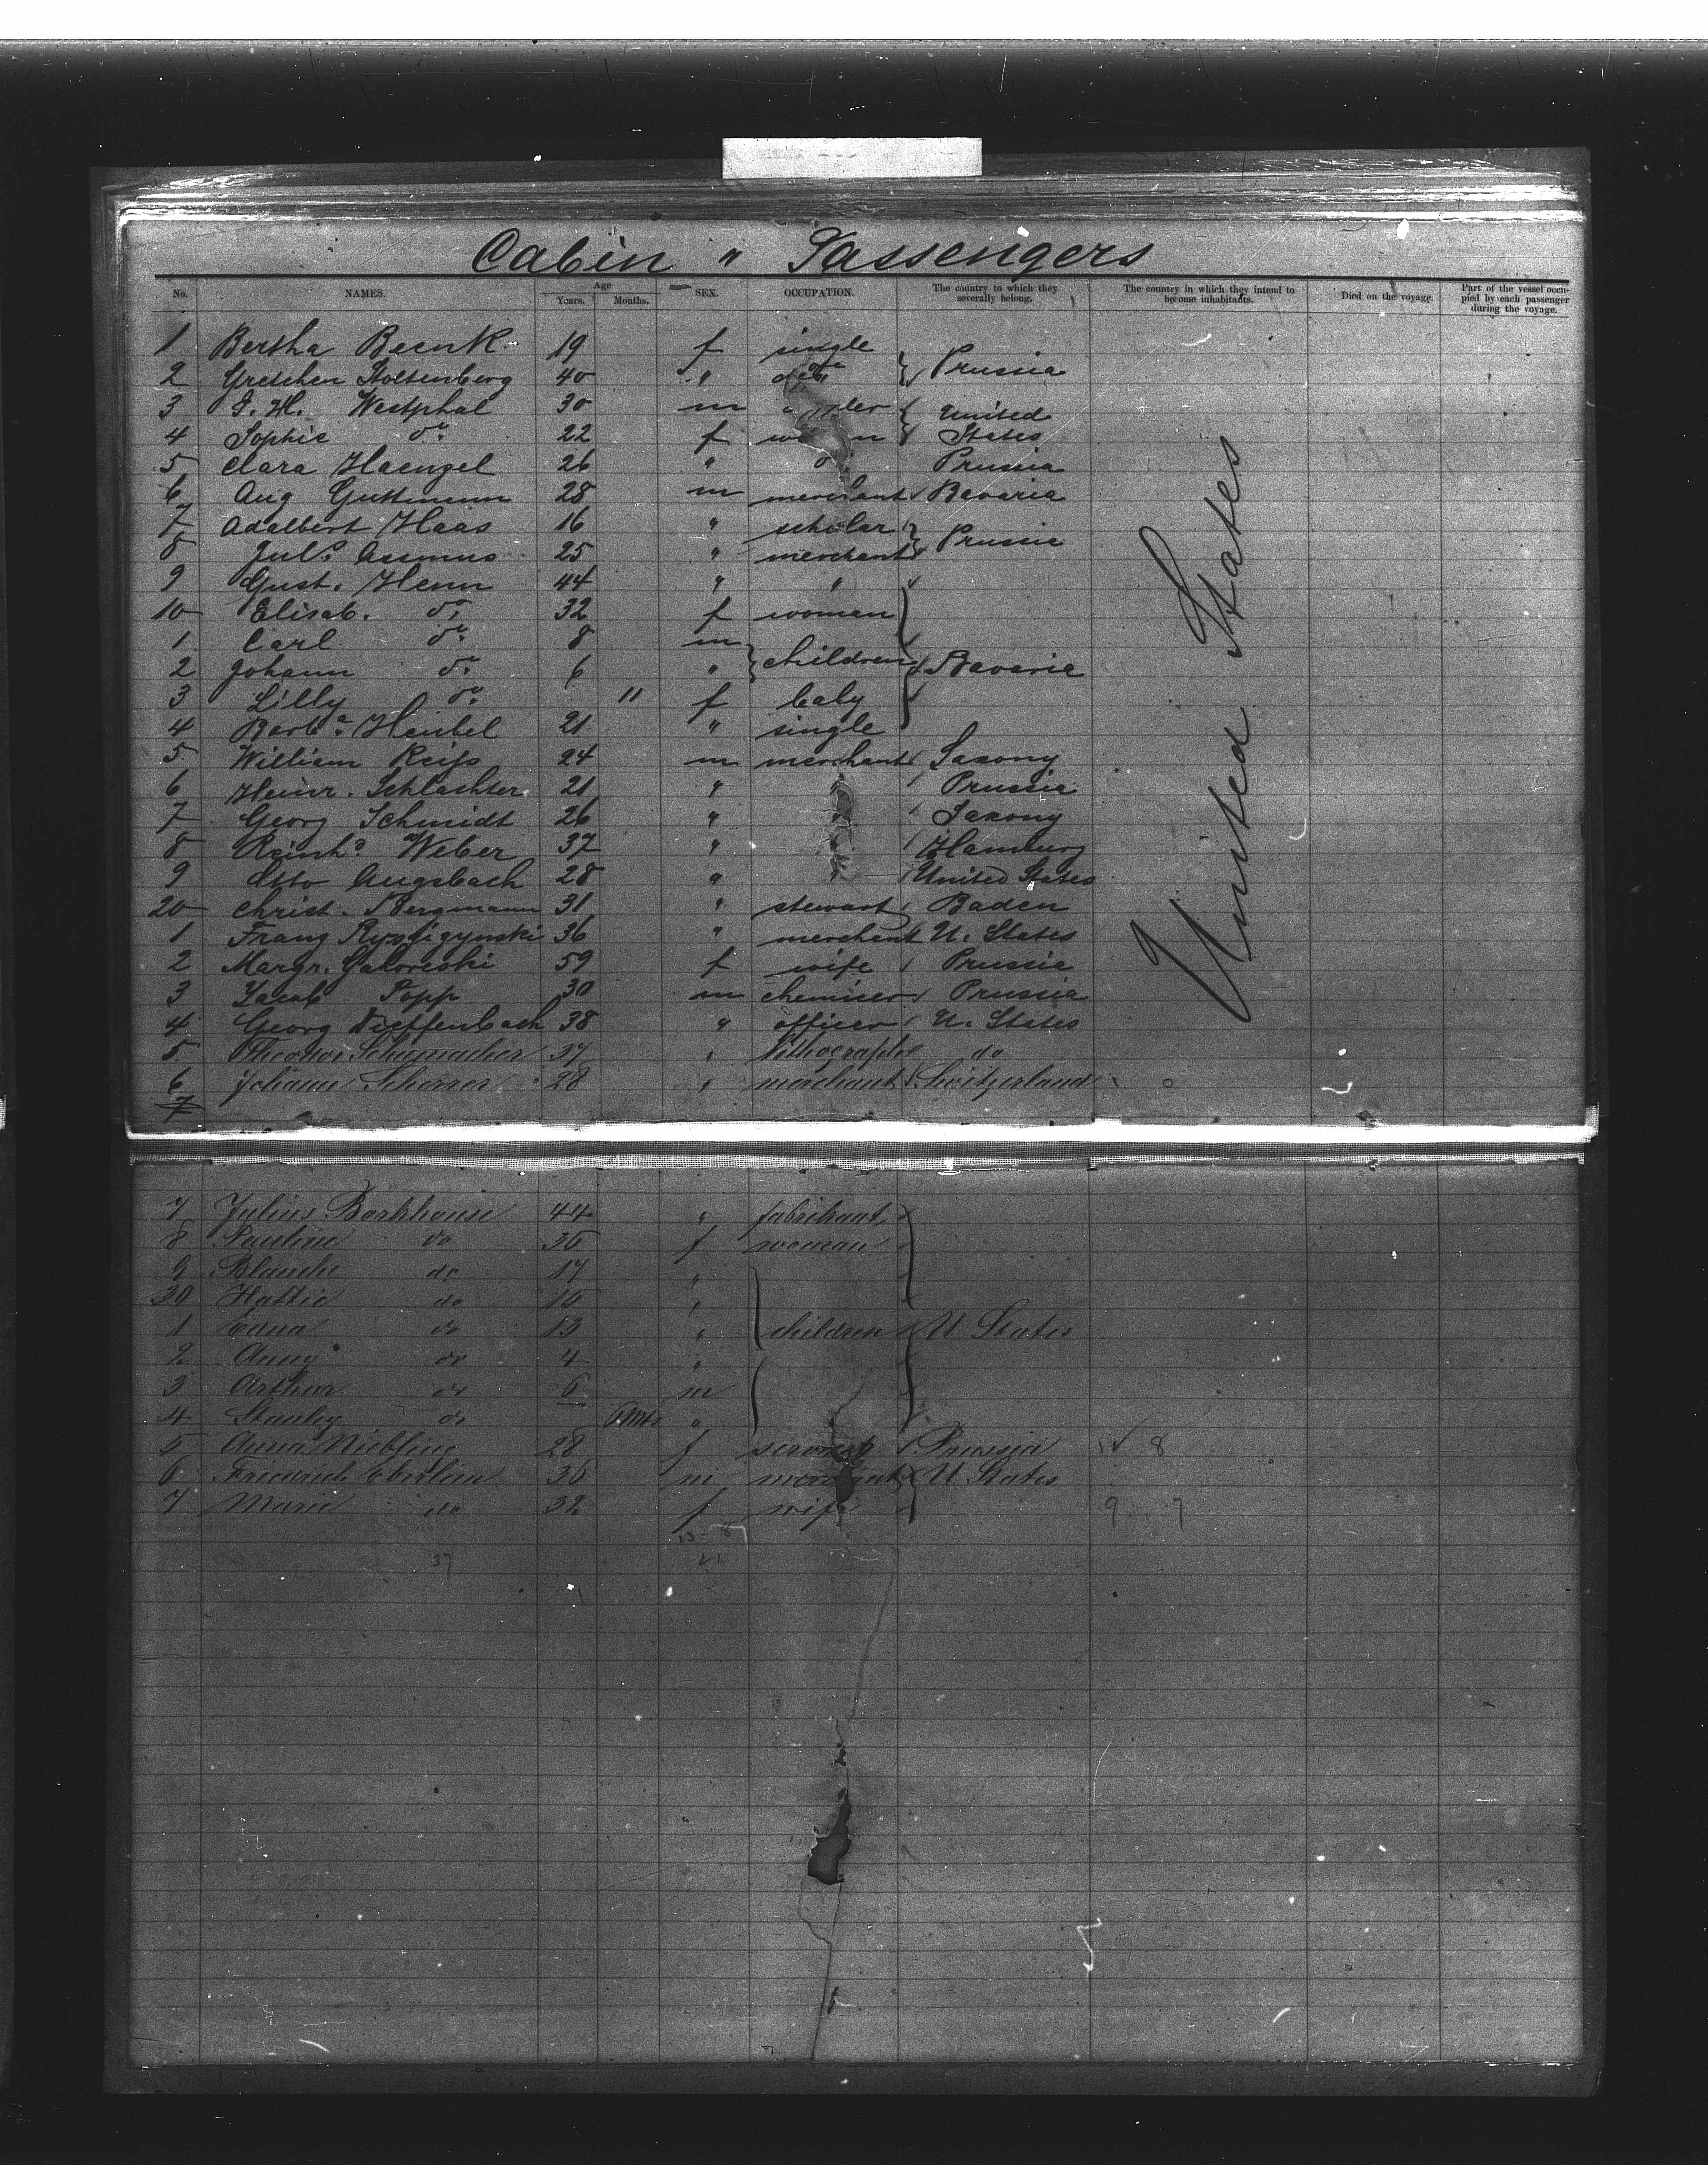 Cabin " Passengers
No. NAMES. Age Years. Months. SEX. OCCUPATION. The country to which they severally belong. The country in which they intend to become inhabitants. Died on the voyage. Part of the vessel occupied by each passenger during the voyage.
1 Bertha Beenk. 19 f single
2 Gretchen Stoltenberg 40 " Prussia
3 J. H. Westphal 30 m United
4 Sophie do 22 f States
5 Clara Haengel 26 " Prussia
6 Aug Guttmann 28 m merchant Bavaria
7 Adalbert Haas 16 " scholar Prussia
8 Juls. Assmus 25 " merchant
9 Gust. Henn 44 " "
10 Elisab. do 32 f woman
1 Carl do 8 m
2 Johann do 6 " children Bavaria
3 Lilly do 11 f baby
4 Barba. Heubel 21 " single
5 William Reifs 24 m merchant Saxony
6 Heinr. Schlachter 21 " Prussia
7 Georg Schmidt 26 " Saxony
8 Reinhd. Weber 37 " Hamburg
9 Otto Augsbach 28 " " United States
20 Christ. Bergmann 31 " stewart Baden
1 Franz 36 " merchant U. States
2 Margr. 59 f wife Prussia
3 Jacob Popp 30 m chemiser Prussia
4 Georg Dieffenbach 38 " officer U. States
5 Theodor Schumacher 37 " lithograph do
6 Johann Scherrer 28 " merchant Switzerland
7
United States
7 Julius Barkhouse 44 " fabrikant
8 Pauline do 36 f woman
9 Blanche do 17 "
30 Hattie do 15 "
1 Edna do 13 " children U States
2 Anny do 4 "
3 Arthur do 6 m
4 Stanley do — 6 Mts "
5 Anna Niebling 28 f servant Prussia 8
6 Friedrich Eberlein 36 m merchant U. States
7 Marie do 32 f wife 9 7
37